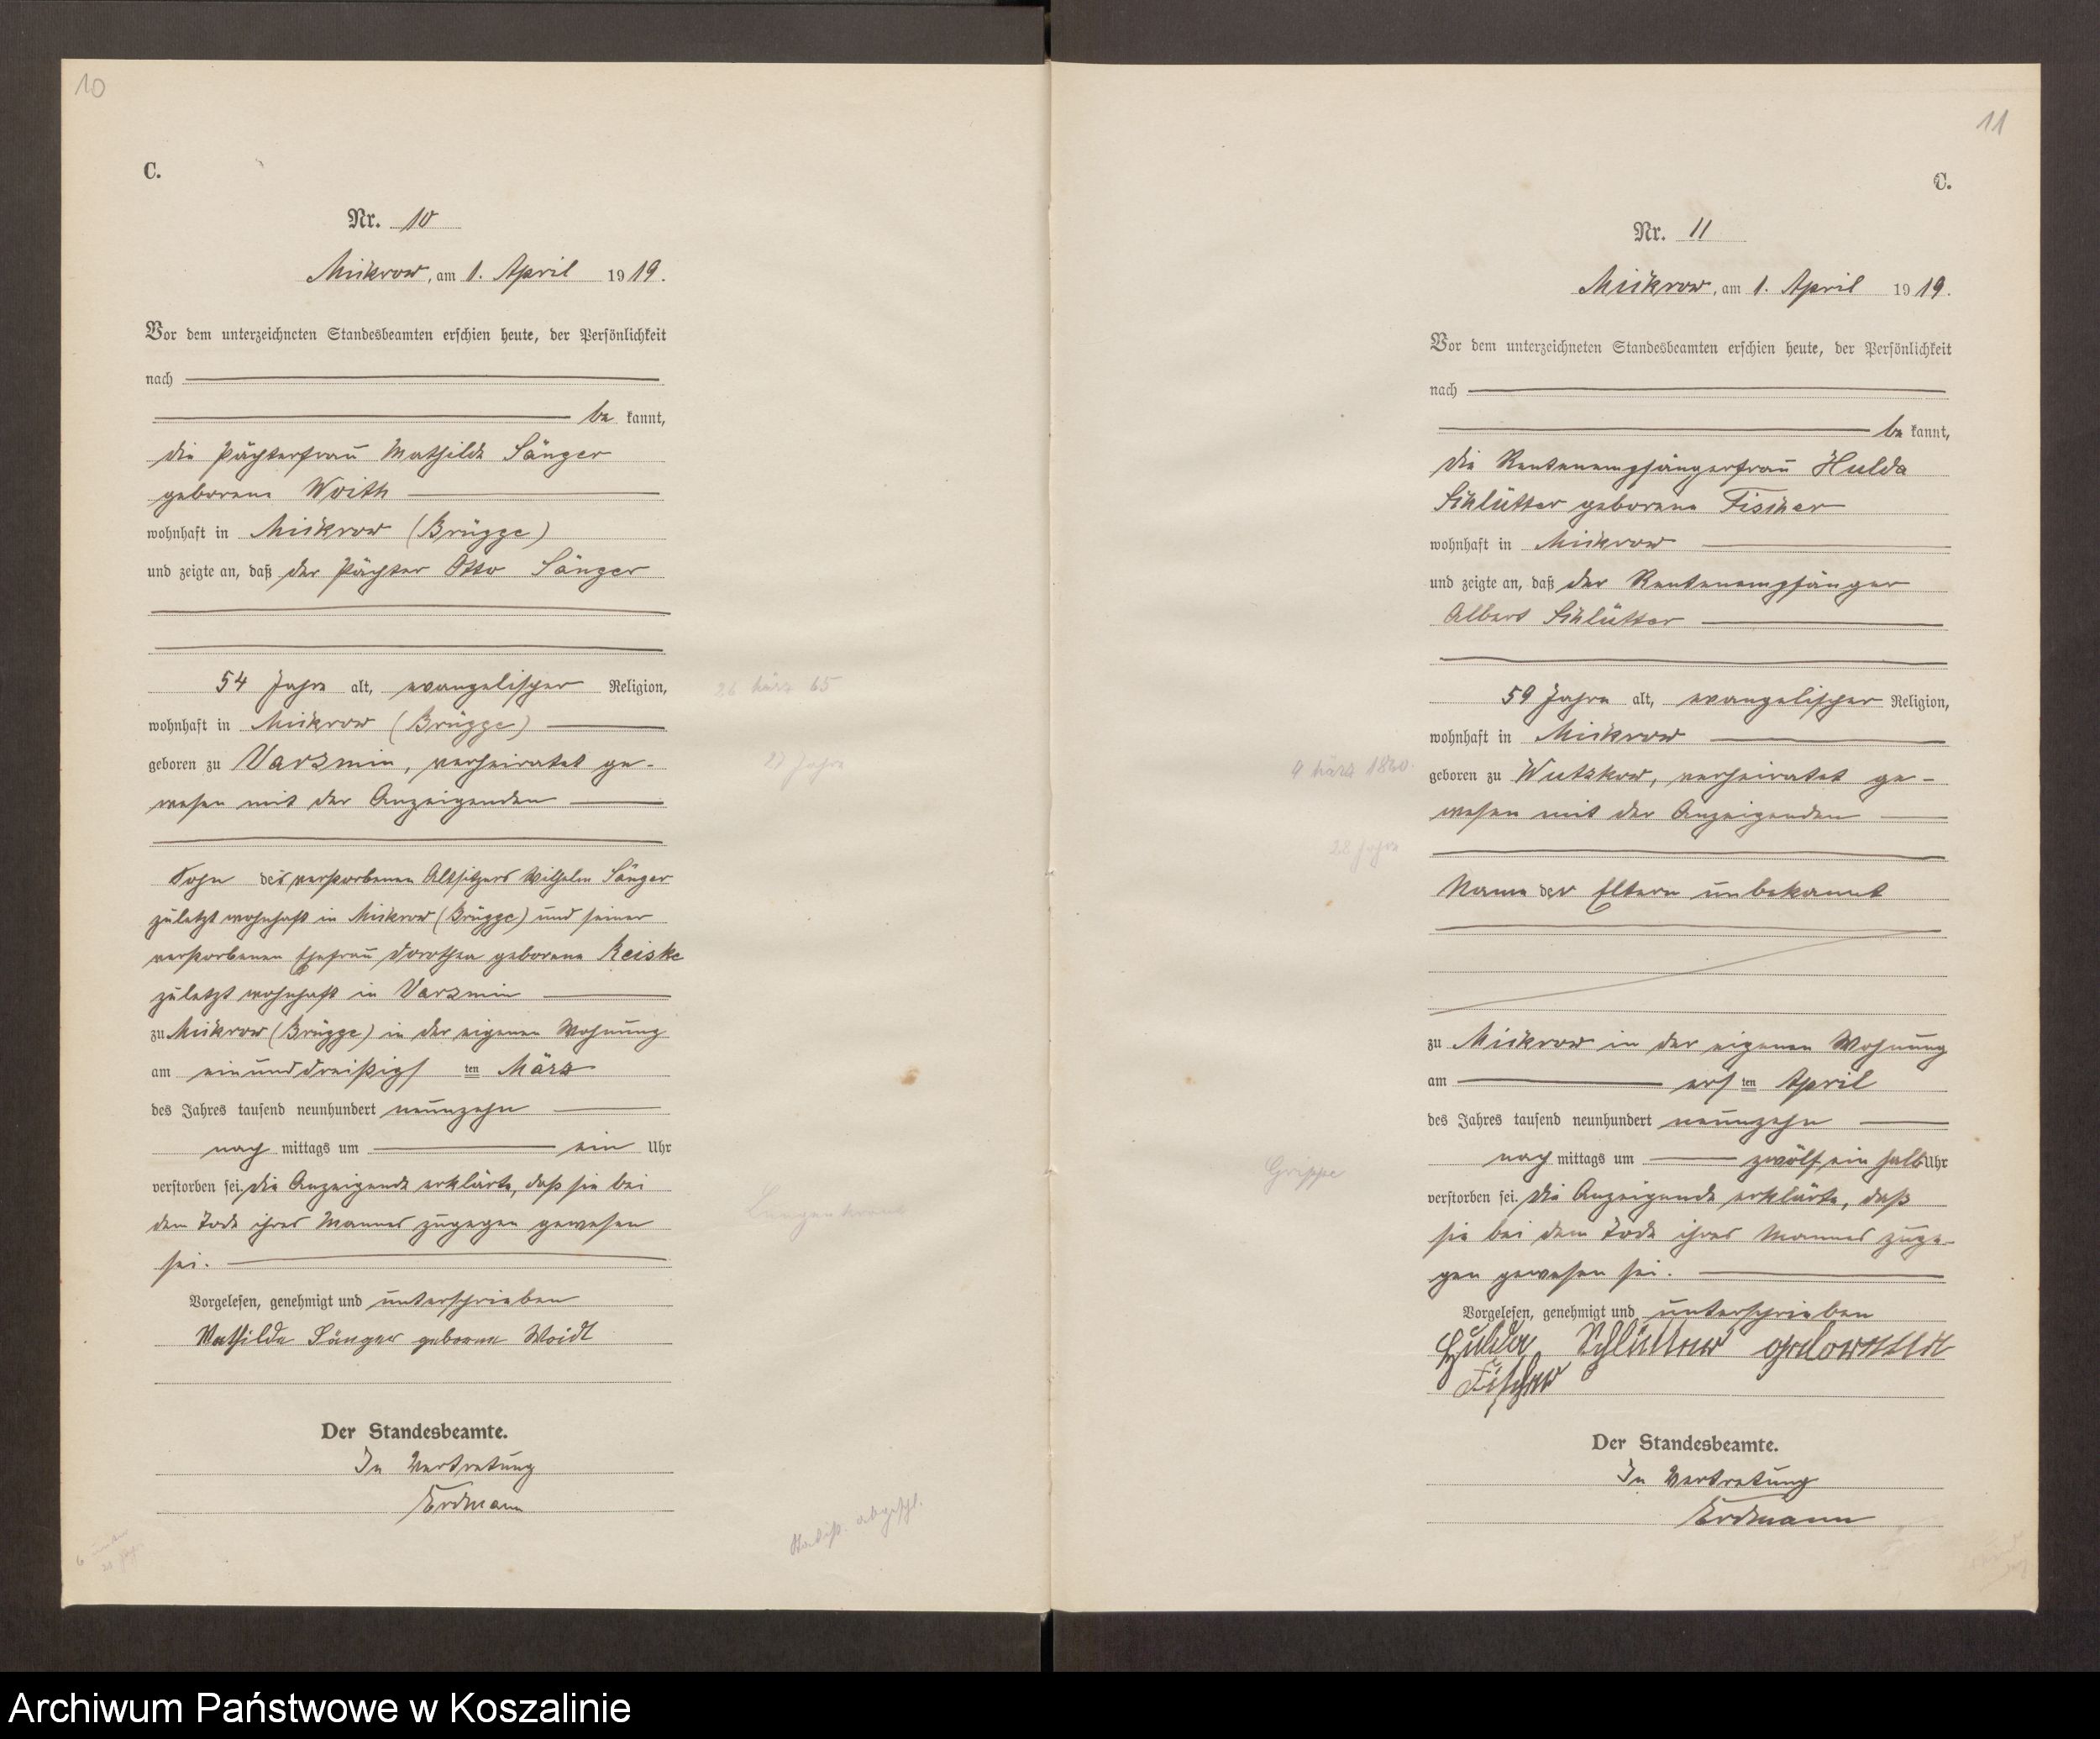 10
C.
Nr. 10
Mickrow, am 1. April 1919.
Vor dem unterzeichneten Standesbeamten erschien heute, der Persönlichkeit
nach
be kannt,
die Pächterfrau Mathilde Sänger
geborene Woith
wohnhaft in Mickrow (Brügge)
und zeigte an, daß der Pächter Otto Sänger
54 Jahre alt, evangelischer Religion,
wohnhaft in Mickrow (Brügge)
geboren zu Varzmin, verheiratet ge-
wesen mit der Anzeigenden
Sohn des verstorbenen Altsitzers Wilhelm Sänger
zuletzt wohnhaft in Mickrow (Brügge) und seiner
verstorbenen Ehefrau Dorothea geborene Reiske
zuletzt wohnhaft in Varzmin
zu Mickrow (Brügge) in der eigenen Wohnung
am einunddreißigs ten März
des Jahres tausend neunhundert neunzehn
nach mittags um ein Uhr
verstorben sei. Die Anzeigende erklärte, daß sie bei
dem Tode ihres Mannes zugegen gewesen
sei.
Vorgelesen, genehmigt und unterschrieben
Mathilde Sänger geborene Woidt
Der Standesbeamte.
In Vertretung
Erdmann
26 März 65
27 Jahre
Statist. abgeschl.
11
C.
Nr. 11
Mickrow, am 1. April 1919.
Vor dem unterzeichneten Standesbeamten erschien heute, der Persönlichkeit
nach
be kannt,
die Rentenempfängerfrau Hulda
Schlütter geborene Fischer
wohnhaft in Mickrow
und zeigte an, daß der Rentenempfänger
Albert Schlütter
59 Jahre alt, evangelischer Religion,
wohnhaft in Mickrow
geboren zu Wutzkow, verheiratet ge-
wesen mit der Anzeigenden
Name der Eltern unbekannt
zu Mickrow in der eigenen Wohnung
am ers ten April
des Jahres tausend neunhundert neunzehn
nach mittags um zwölf ein halb Uhr
verstorben sei. Die Anzeigende erklärte, daß
sie bei dem Tode ihres Mannes zuge-
gen gewesen sei.
Vorgelesen, genehmigt und unterschrieben
Hulda Schlütter geborenen
Fischer
Der Standesbeamte.
In Vertretung
Erdmann
9 März 1860.
28 Jahre
Grippe
Archiwum Państwowe w Koszalinie